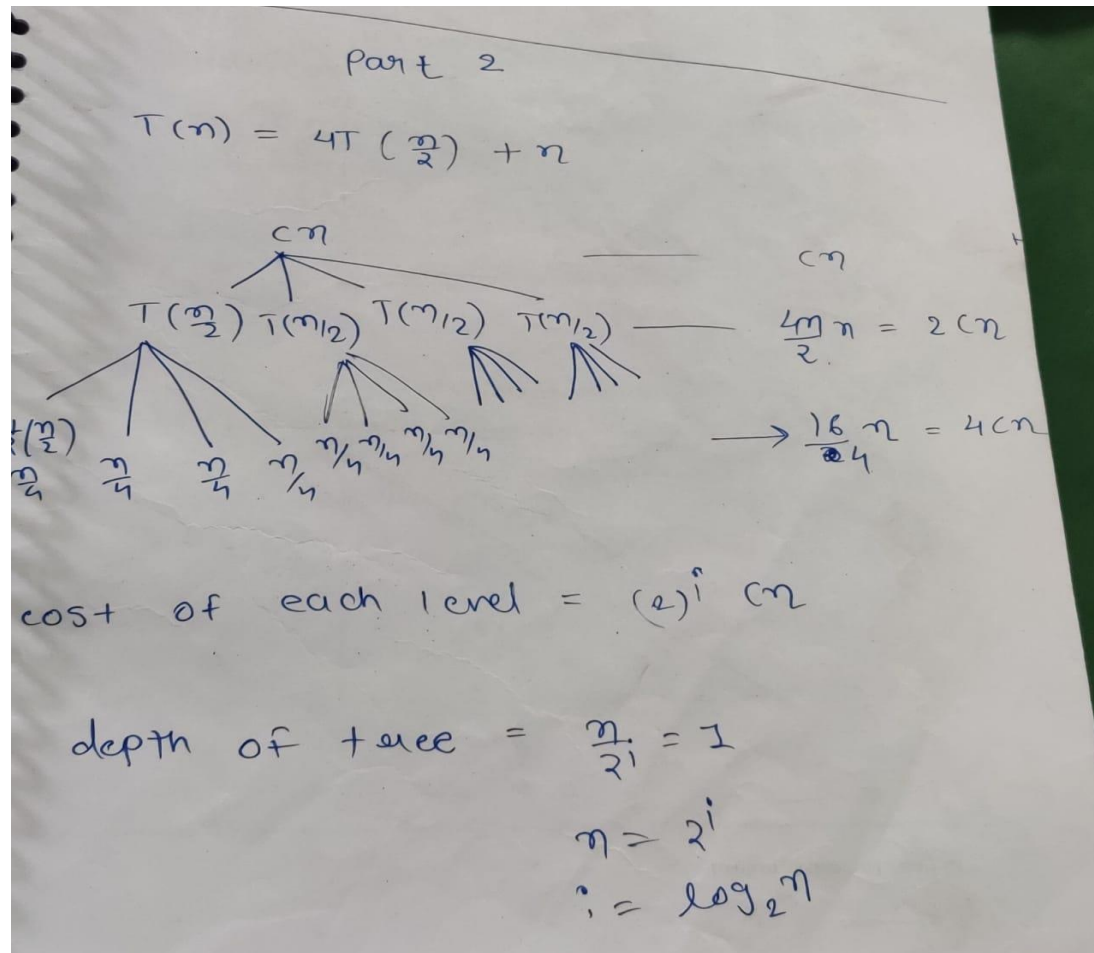 Part 2
T(n) = 4T (n/2) + n
cn
cn
T(n/2) T(n/2) T(n/2) T(n/2)
4n/2 n = 2cn
(n/2)
n/4 n/4 n/4 n/4 n/4 n/4 n/4 n/4
→ 16/4 n = 4cn
cost of each level = (2)^i cn
depth of tree = n/2^i = 1
n = 2^i
i = log₂n